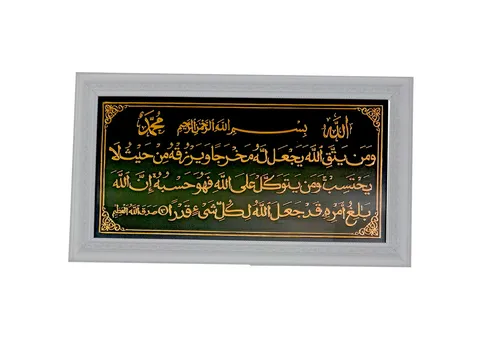 الله بسم الله الرحمن الرحيم محمد
ومن يتق الله يجعل له مخرجا ويرزقه من حيث لا
يحتسب ومن يتوكل على الله فهو حسبه إن الله
بالغ أمره قد جعل الله لكل شيء قدرا صدق الله العظيم